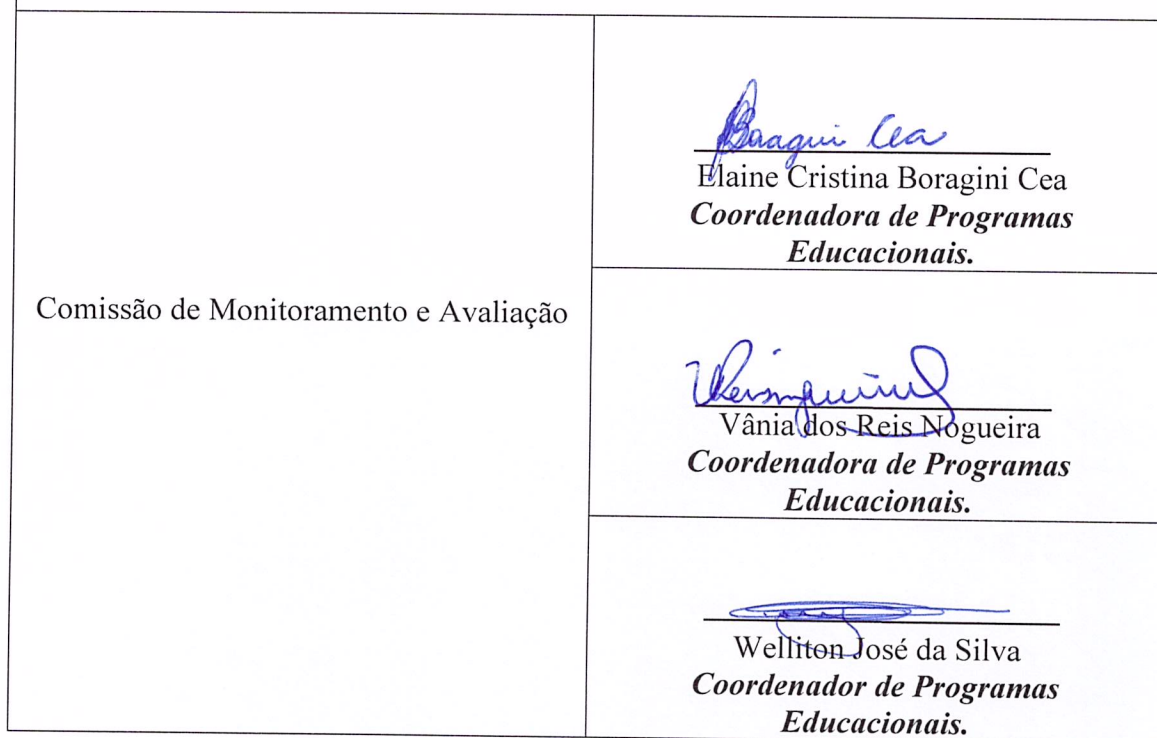 Comissão de Monitoramento e Avaliação
Elaine Cristina Boragini Cea
Coordenadora de Programas
Educacionais.
Vânia dos Reis Nogueira
Coordenadora de Programas
Educacionais.
Welliton José da Silva
Coordenador de Programas
Educacionais.